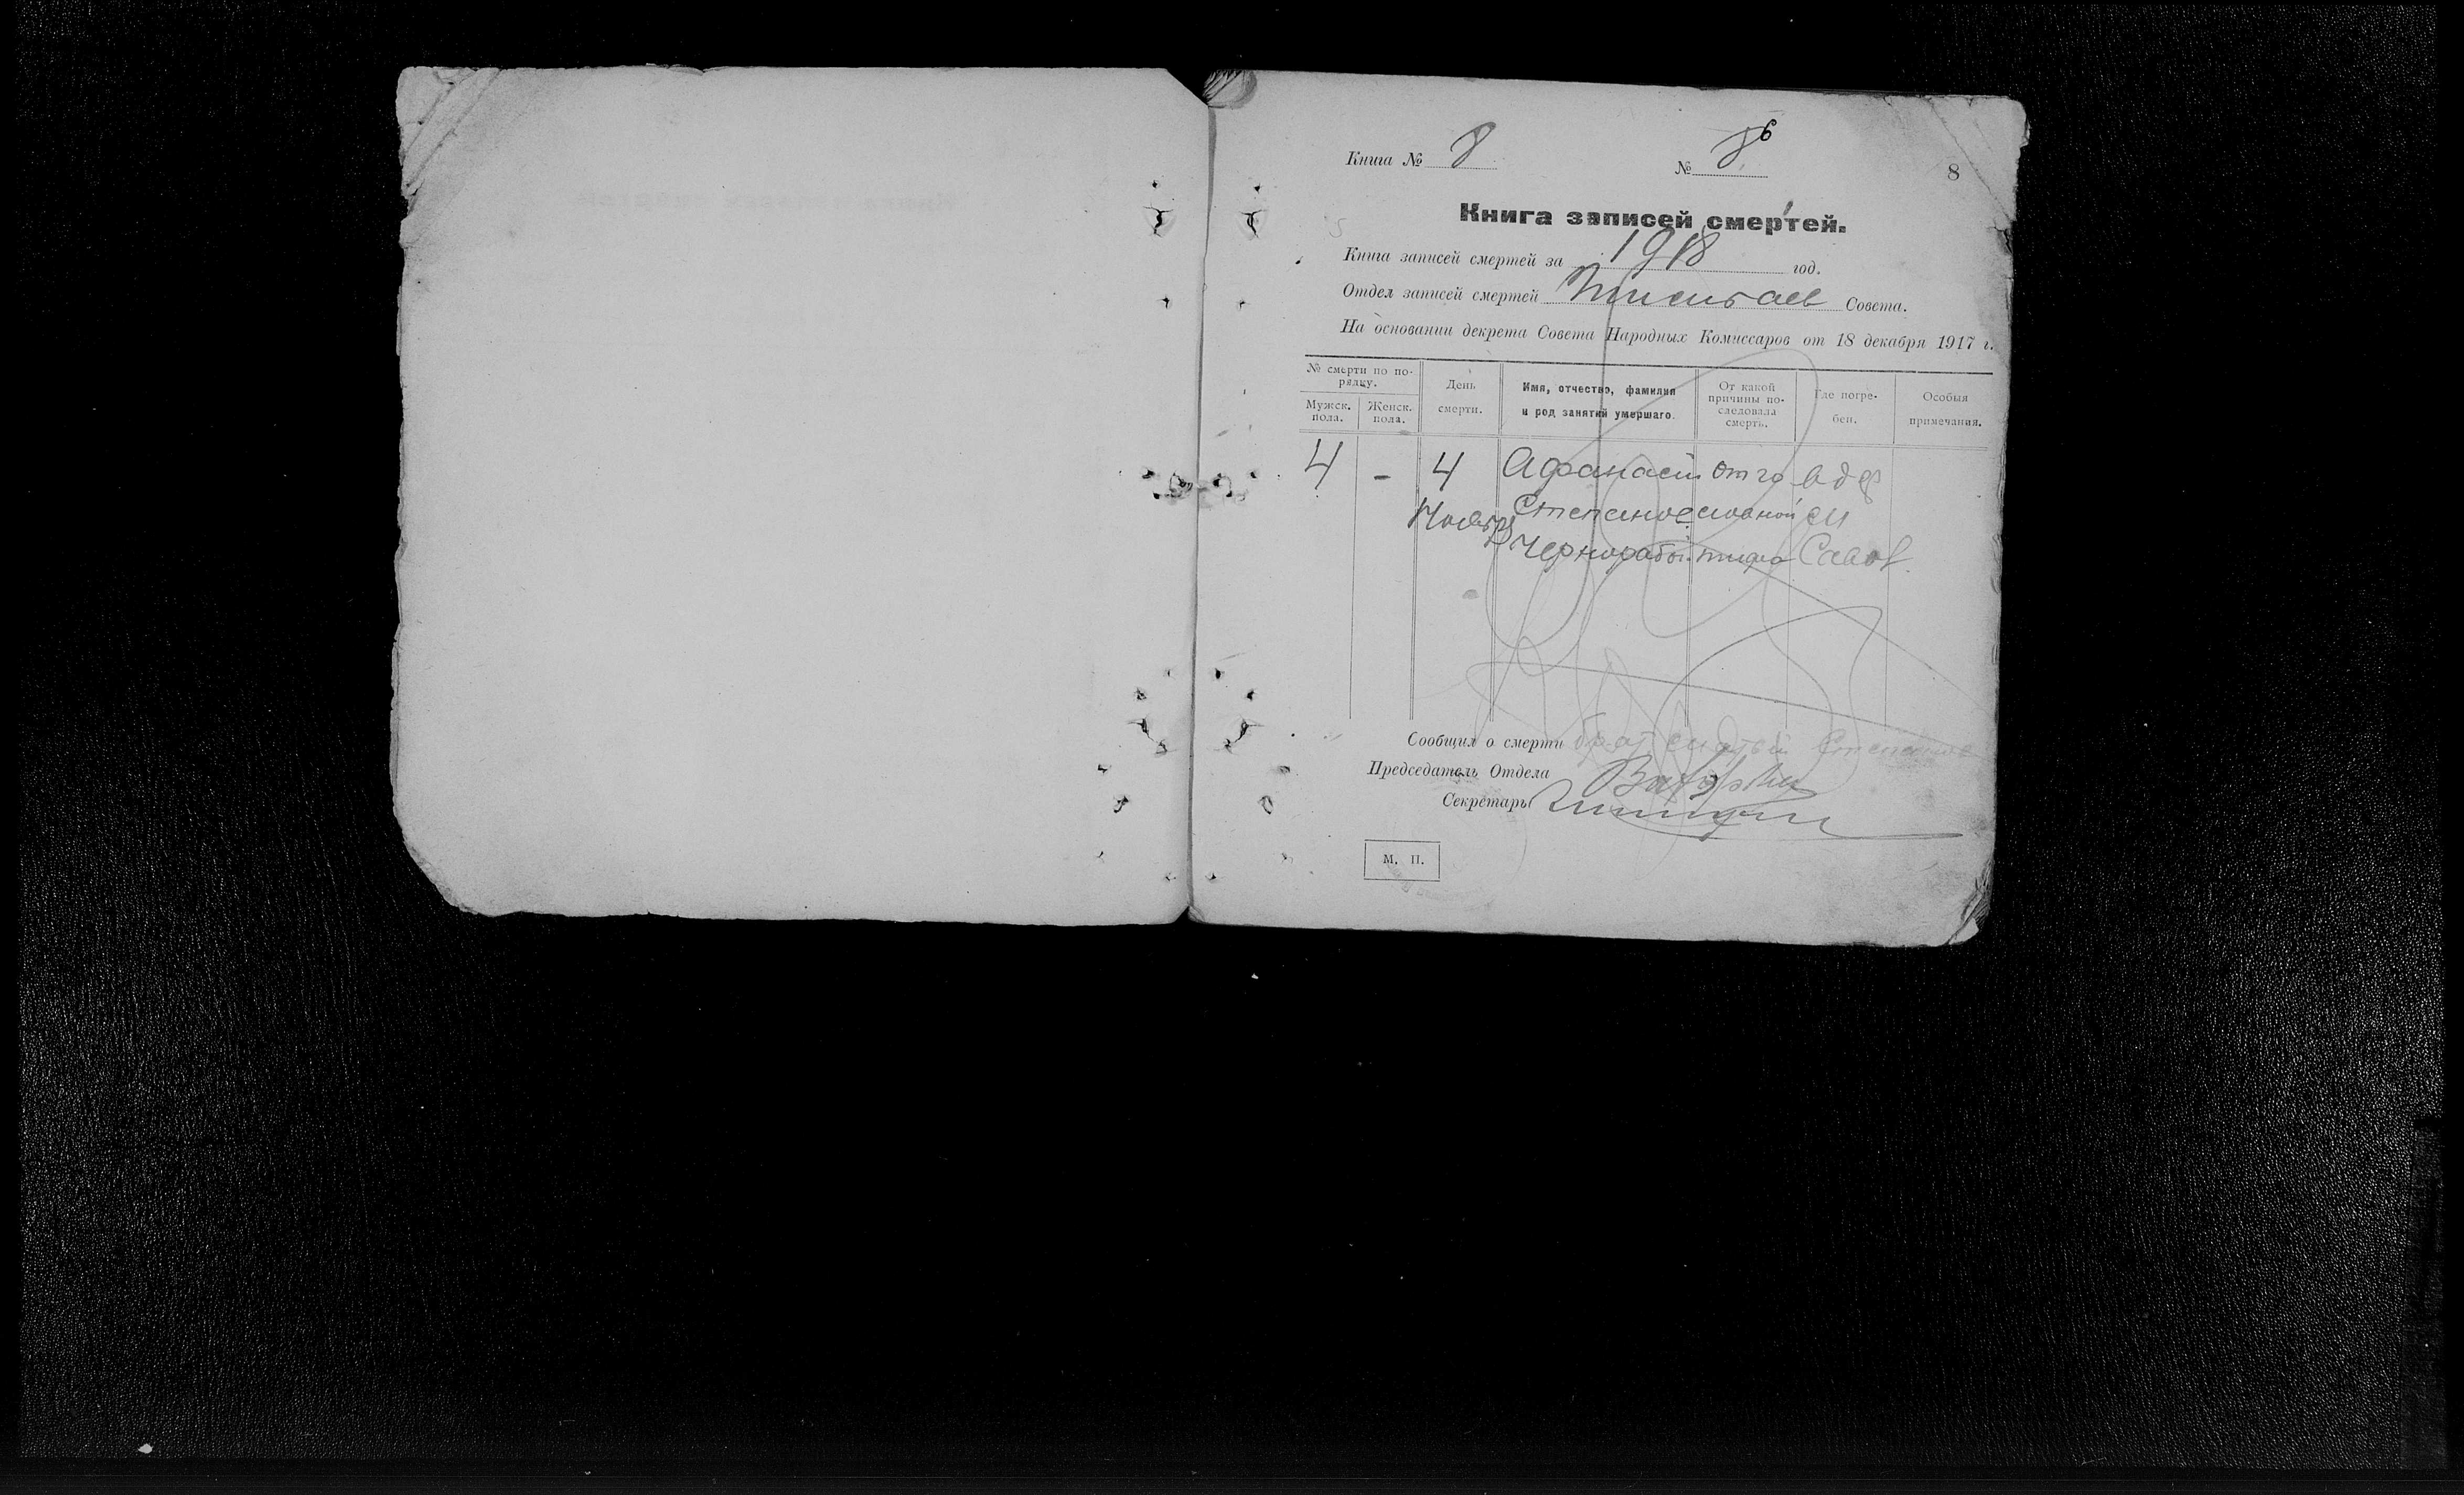 Книга № 8
№ 8 6
8
Книга записей смертей.
Книга записей смертей за 1918 год.
Отдел записей смертей Совета.
На основании декрета Совета Народных Комиссаров от 18 декабря 1917 г.
№ смерти по по-
рядку.
Мужск.
пола.
Женск.
пола.
День
смерти.
Имя, отчество, фамилия
и род занятий умершаго.
От какой
причины по-
следовала
смерть.
Где погре-
бен.
Особыя
примечания.
4 - 4 Афанасий от го в дер
Ноября Степанов ловной
Чернорабоч. тифа
Сообщил о смерти брат Степанов
Председатель Отдела
Секретарь
М. П.